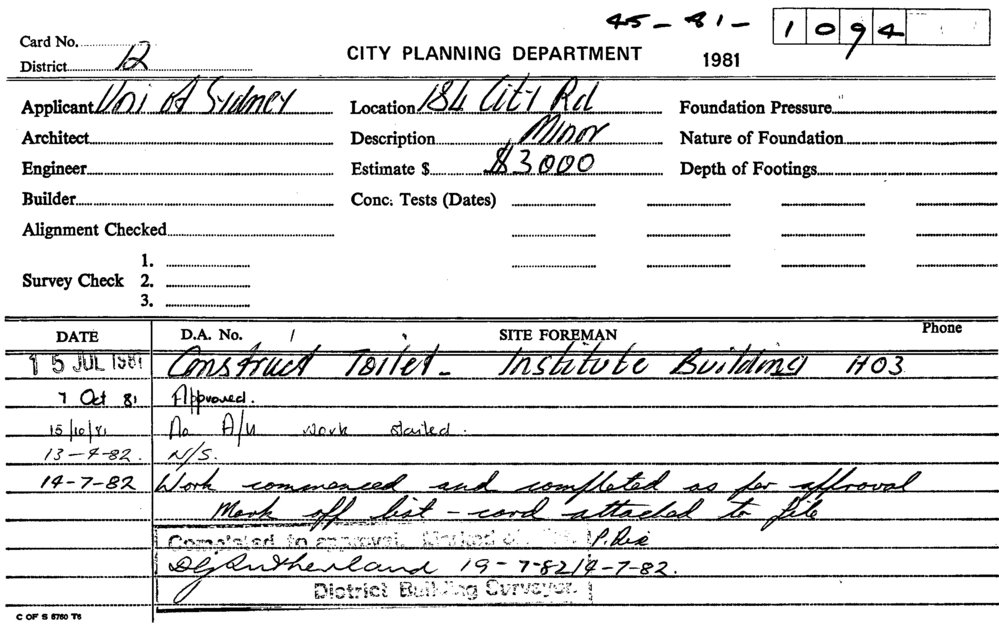 45-81- 1094
Card No.
District 12
CITY PLANNING DEPARTMENT 1981
Applicant Uni of Sydney Location 184 City Rd Foundation Pressure
Architect Description Minor Nature of Foundation
Engineer Estimate $ $3000 Depth of Footings
Builder Conc. Tests (Dates)
Alignment Checked
1.
Survey Check 2.
3.
DATE D.A. No. / SITE FOREMAN Phone
15 JUL 1981 Construct Toilet - Institute Building H03
7 Oct 81 Approved.
15/10/81 No work started.
13-4-82. N/S.
14-7-82 Work commenced and completed as per approval
Mark off list - card attached to file
Completed to approval. Marked off P.
DG Sutherland 19-7-82 14-7-82.
District Building Surveyor.
C OF S 8760 T6